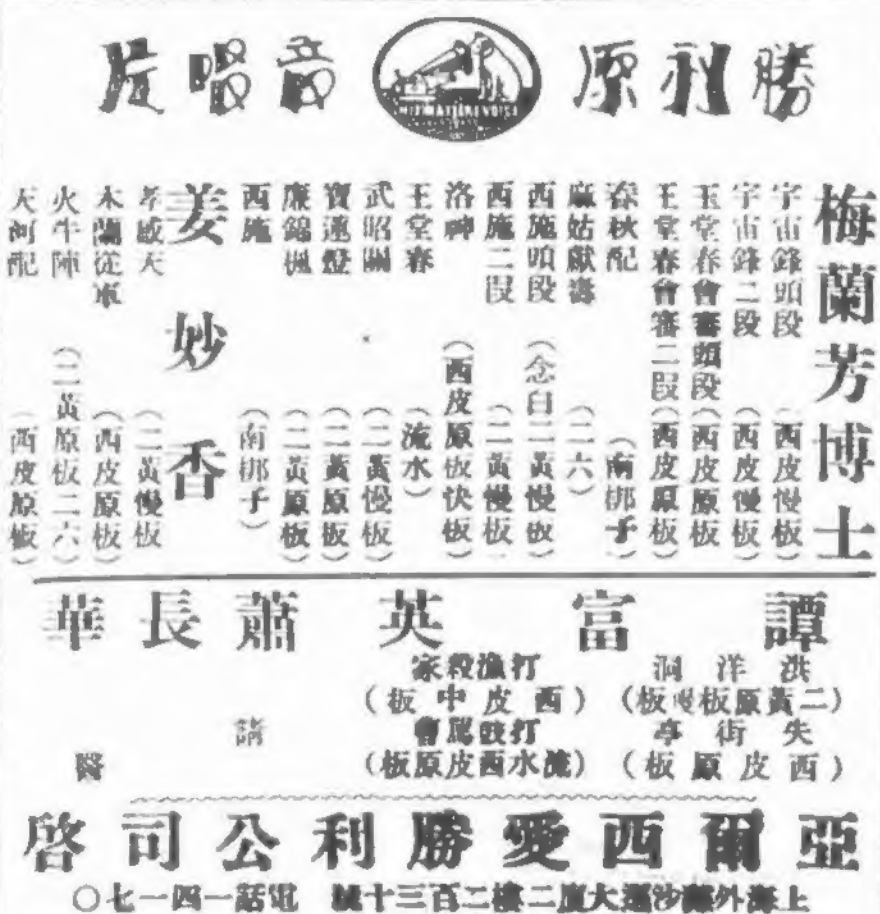 勝利原音唱片
HIS MASTER'S VOICE
梅蘭芳博士
宇宙鋒頭段(西皮慢板)
宇宙鋒二段(西皮慢板)
玉堂春會審頭段(西皮原板)
玉堂春會審二段(西皮原板)
春秋配(南梆子)
麻姑獻壽(二六)
西施頭段(念白二黃慢板)
西施二段(二黃慢板)
洛神(西皮原板快板)
玉堂春(流水)
武昭關(二黃慢板)
寶蓮燈(二黃原板)
廉錦楓(二黃原板)
西施(南梆子)
姜妙香
孝感天(二黃慢板)
木蘭從軍(西皮原板)
火牛陣(二黃原板二六)
天河配(西皮原板)
譚富英
洪洋洞
(二黃原板慢板)
失街亭
(西皮原板)
打漁殺家
(西皮中板)
打鼓罵曹
(流水西皮原板)
蕭長華
請醫
亞爾西愛勝利公司啓
上海外灘沙遜大廈二樓二百三十號 電話一四一七〇